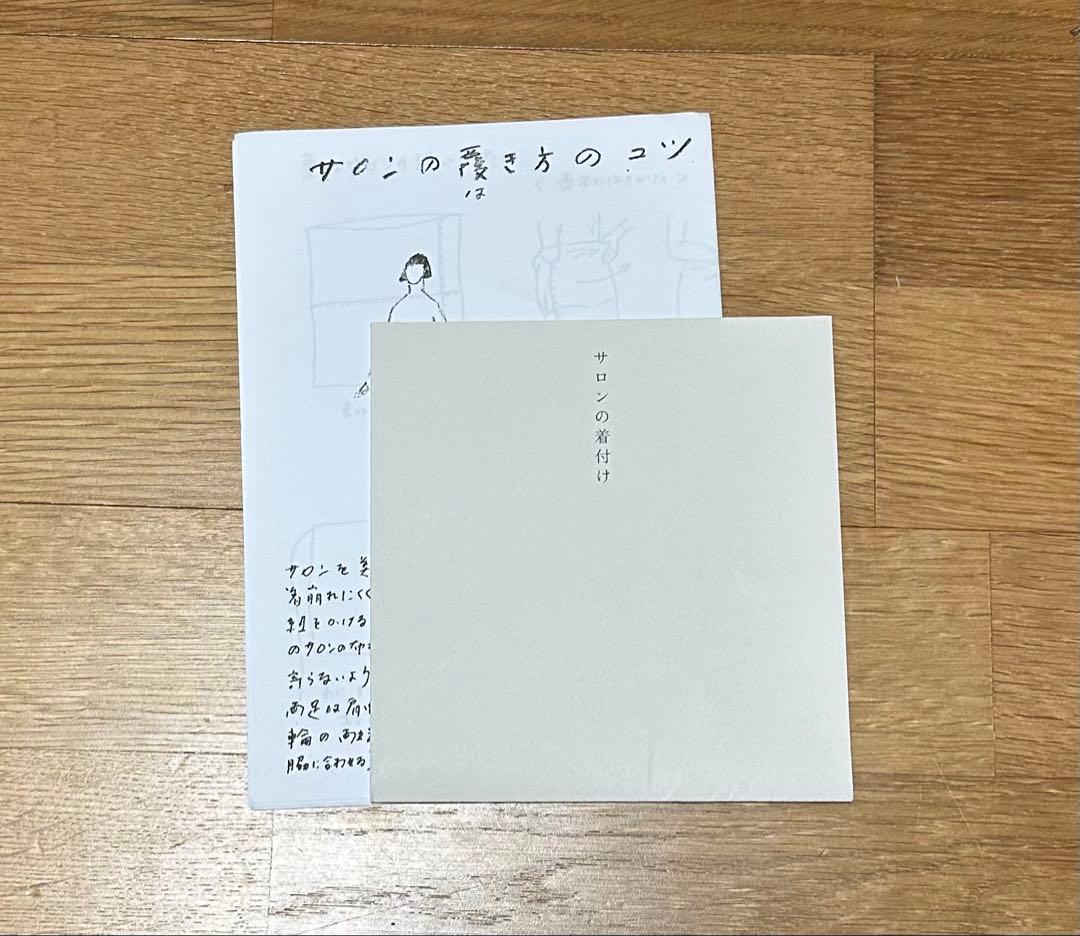 サロンの履き方のコツ
は
サロンを美
着崩れにくく
紐をかける
のサロンの布
寄らないよう
両足は肩
輪の両
脇に合わせる
サロンの着付け